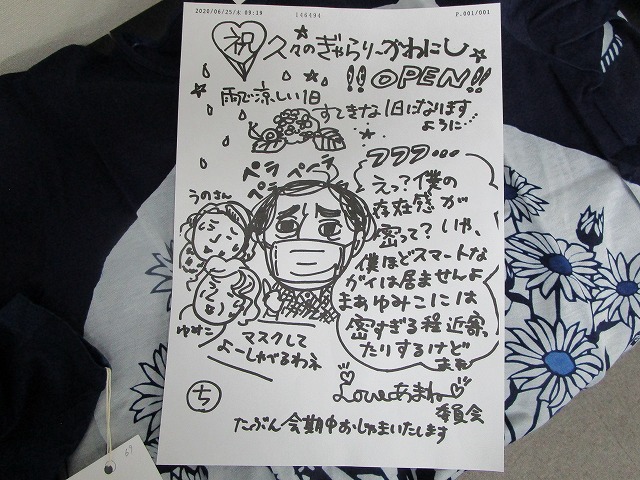 2020/06/25/木 09:19 146494 P.001/001
祝 久々のぎゃらりーかわにし
!!OPEN!!
雨で涼しい1日
すてきな1日になります
ように…
ペラ ペーラ
ペラ
うのさん
ゆみこ
マスクして
よーしゃべるわネ
フフフ…
えっ?僕の
存在感が
密って?いや、
僕ほどスマートな
ガイは居ませんよ
まあゆみこには
密すぎる程近寄っ
たりするけど
まね
Loveあまね
委員会
ち
たぶん会期中おじゃまいたします
69